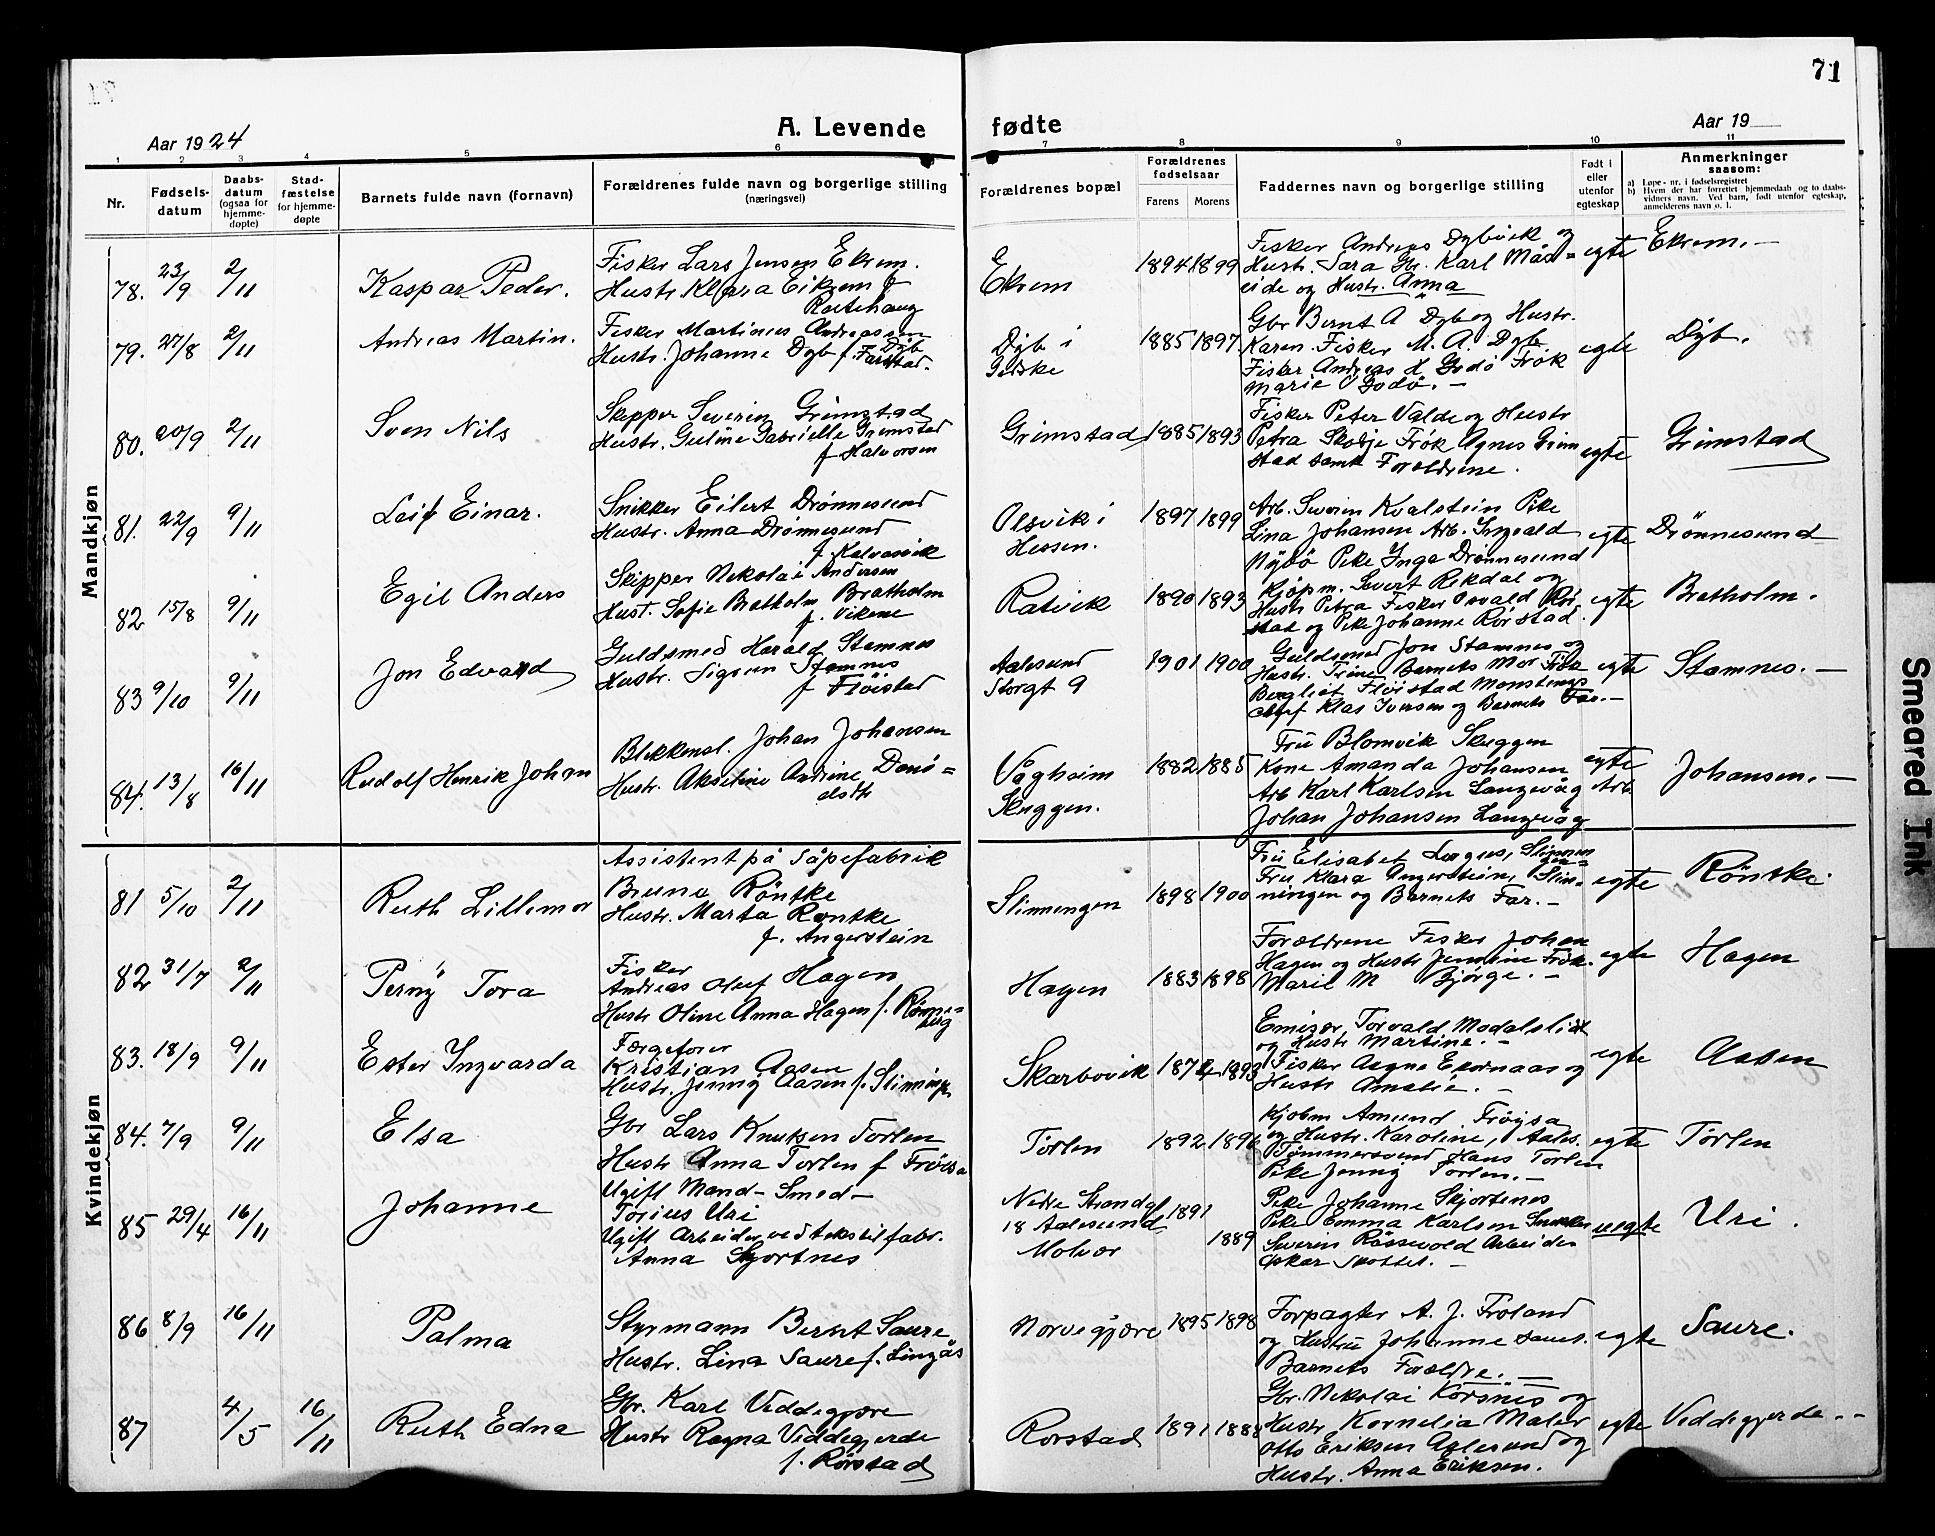 71
Aar 1924
A. Levende
fødte
Aar 19
1 2 3 4 5 6 7 8 9 10 11
Nr.
Fødsels-
datum
Daabs-
datum
(ogsaa for
hjemme-
døpte)
Stad-
fæstelse
for hjemme-
døpte
Barnets fulde navn (fornavn)
Forældrenes fulde navn og borgerlige stilling
(næringsvei)
Forældrenes bopæl
Forældrenes
fødselsaar
Farens Morens
Faddernes navn og borgerlige stilling
Født i
eller
utenfor
egteskap
Anmerkninger
saasom:
a) Løpe-nr. i fødselsregistret
b) Hvem der har forrettet hjemmedaab og to daabs-
vidners navn. Ved barn, født utenfor egteskap,
anmelderens navn o. l.
Mandkjøn
78. 23/9 2/11 Kaspar Peder.
Fisker Lars Jensen Ekrem.
Hustr. Klara Eikrem f
Roitehaug
Ekrem
1894 1899
Fisker Andreas Dybvik og
Hustr. Sara Gbr. Karl Mås=
eide og Hustr. Anna
egte
Ekrem.-
79. 27/8 2/11 Andreas Martin.
Fisker Martinus Andreassen
Dyb
Hustr. Johanne Dyb f. Farstad.
Dyb i
Giske
1885 1897
Gbr Bernt A Dyb og Hustr.
Karen. Fisker M. A. Dyb
Fisker Andreas d Godö Frøk
Marie O Godö.-
egte
Dyb.
80. 20/9 2/11 Sven Nils
Skipper Severin Grimstad
Hustr. Guline Gabrielle Grimstad
f Halvorsen
Grimstad
1885 1893
Fisker Peter Valde og Hustr
Petra Skodje Frøk Agnes Grim
stad samt Forældrene.
egte
Grimstad
81. 22/9 9/11 Leif Einar.
Snikker Eilert Drönnesund
Hustr. Anna Drönnesund
f. Kalvasvik
Olsvik i
Hessen.
1897 1899
Arb. Severin Kvalstein Pike
Lina Johansen Arb. Ingvald
Nybö Pike Inga Drönnesund
egte
Drönnesund
82 15/8 9/11 Egil Anders
Skipper Nikolai Andersen
Bratholm
Hust. Sofie Bratholm
f. Vikene
Ratvik
1890 1893
Kjöpm. Sivert Rekdal og
Hustr Petra Fisker Osvald Rör
stad og Pike Johanne Rörstad.
egte
Bratholm.
83 9/10 9/11 Jon Edvard
Guldsmed Harald Stamnes
Hustr. Sigrun Stamnes
f Flöistad
Aalesund
Storgt 9
1901 1900
Guldsmed Jon Stamnes og
Hustr. Trine Barnets Mor Frøk
Bergliot Flöistad Mønstrings
chef Klas Iversen og Barnets Far.-
egte
Stamnes.-
84. 13/8 16/11 Rudolf Henrik Johan
Blikkensl. Johan Johansen
Hustr. Akseline Andrine
Vågheim
Skuggen.
1882 1885
Fru Blomvik Skuggen
Kone Amanda Johansen
Arb Karl Karlsen Langevåg Arb
Johan Johansen Langevåg
egte
Johansen.-
Kvindekjøn
81 5/10 2/11 Ruth Lillemor
Assistent på Såpefabrik
Bruno Röntke
Hustr. Marta Rontke
f. Angerstein
Slinningen
1898 1900
Fru Elisabet Slinnin
gen=
Fru Klara Angerstein, Slin=
ningen og Barnets Far.-
egte
Röntke
82 31/7 2/11 Perny Tora
Fisker
Andreas Oluf Hagen
Hustr Oline Anna Hagen f. Rønne=
berg
Hagen
1883 1898
Forældrene Fisker Johan
Hagen og Hustr Jensine Frøk.
Marie M Bjørge.-
egte
Hagen
83. 18/9 9/11 Ester Ingvarda
Færgefører
Kristian Aasen
Hustr. Jenny Aasen f. Slinninge
Skarbøvik
1874 1893
Emisær Torvald Modalsli
og Hustr Martine.-
Fisker Aagne Ekornaas og
Hustr Amalie.-
egte
Aasen
84. 7/9 9/11 Elsa
Gbr Lars Knutsen Torlen
Hustr Anna Torlen f Fröisa
Tørlen
1892 1896
Kjøbm Amund Fröysa
og Hustr. Karoline, Aales.
Tömmersvend Hans Torlen
Pike Jenny Torlen.-
egte
Tørlen
85 29/4 16/11 Johanne
Ugift Mand- Smed-
Torius Uri
Ugift Arbeider ved tekstilfabr.
Anna Skjortnes
Nedre Strandgt
18 Aalesund
Molvær
1891
1889
Pike Johanne Skjortenes
Pike Emma Karlsen Snikker
Severin Rössevold Arbeider
Oskar Skottet.-
uegte
Uri.
86 8/9 16/11 Palma
Styrmann Bernt Saure
Hustr. Lina Saure f. Lingås
Norvegjære
1895 1898
Forpagter A. J. Froland
og Hustru Johanne samt
Barnets Forældre.-
egte
Saure.
87 4/5 16/11 Ruth Edna
Gbr. Karl Viddegjære
Hustr Ragna Viddegjerde
f. Rörstad
Rorstad
1891 1888
Gbr. Nikolai Korsnes og
Hustr Kornelia Maler
Otto Eriksen Aalesund og
Hustr. Anna Eriksen.
egte
Viddegjerde.-
Smeared Ink